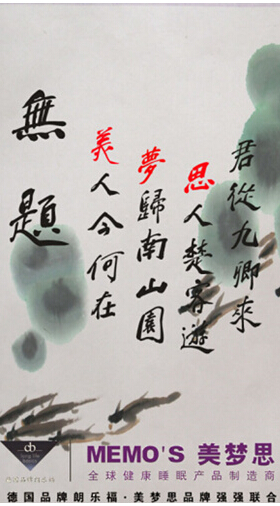 無題
美人今何在
夢歸南山園
思人楚客遊
君從九卿來
MEMO'S 美梦思
全球健康睡眠产品制造商
德国品牌朗乐福·美梦思品牌强强联合